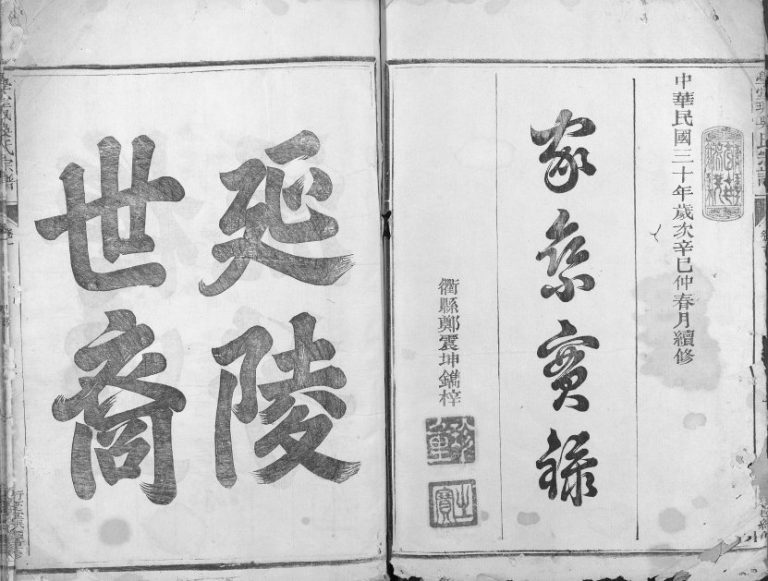 中華民國三十年歲次辛巳仲春月續修
家乘實錄
衢縣鄭震坤鐫梓
延陵
世裔